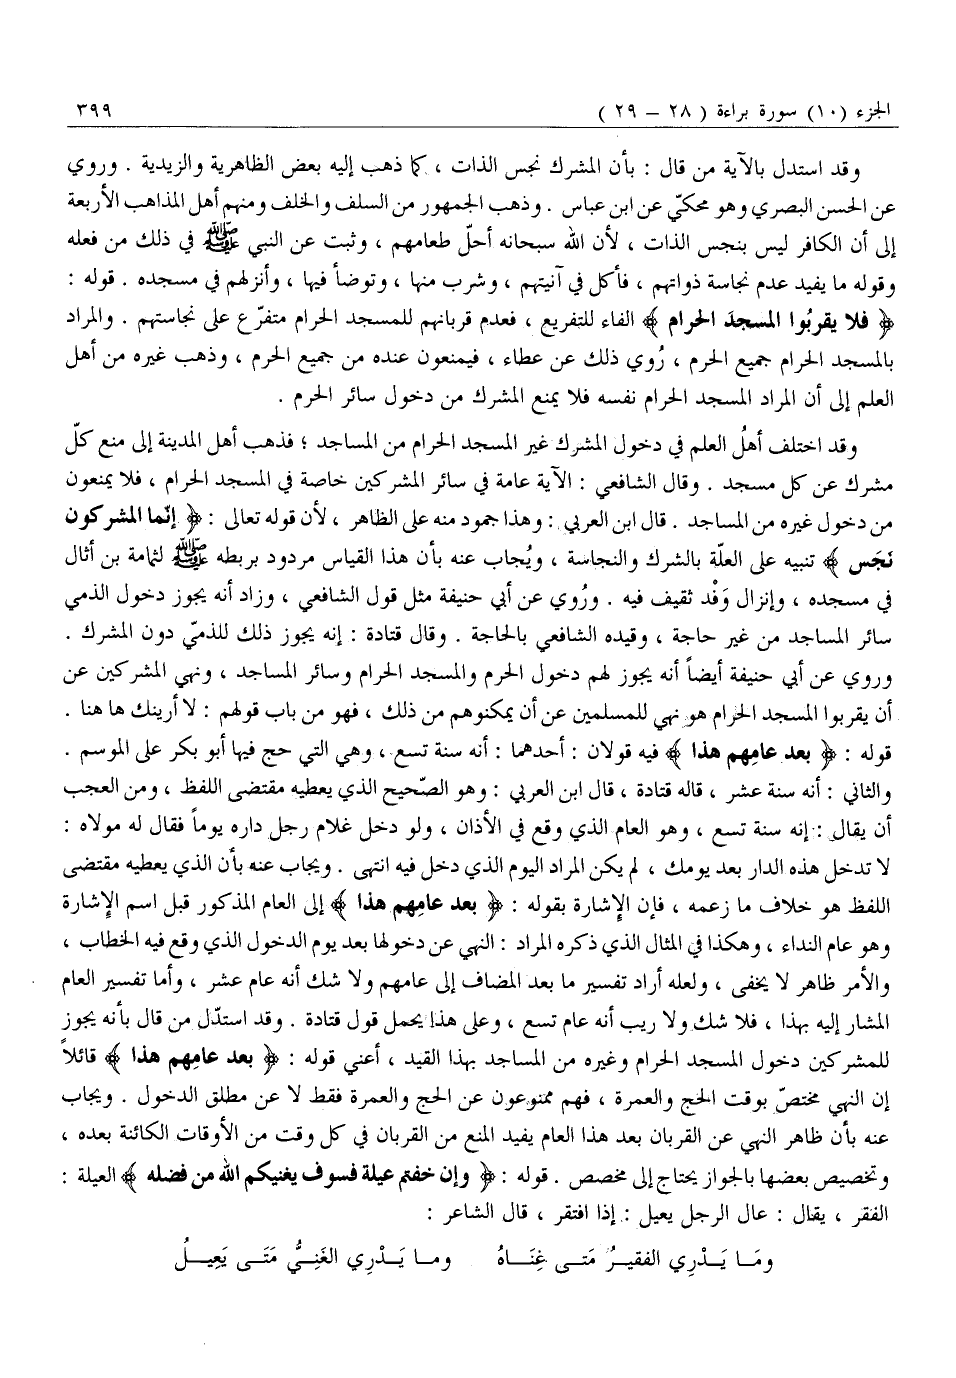 الجزء (١٠) سورة براءة ( ٢٨ – ٢٩ ) ٣٩٩
وقد استدل بالآية من قال : بأن المشرك نجس الذات ، كما ذهب إليه بعض الظاهرية والزيدية . وروي
عن الحسن البصري وهو محكيّ عن ابن عباس . وذهب الجمهور من السلف والخلف ومنهم أهل المذاهب الأربعة
إلى أن الكافر ليس بنجس الذات ، لأن الله سبحانه أحلّ طعامهم ، وثبت عن النبي ﷺ في ذلك من فعله
وقوله ما يفيد عدم نجاسة ذواتهم ، فأكل في آنيتهم ، وشرب منها ، وتوضأ فيها ، وأنزلهم في مسجده . قوله :
﴿ فلا يقربُوا المسجدَ الحرام ﴾ الفاء للتفريع ، فعدم قربانهم للمسجد الحرام متفرّع على نجاستهم . والمراد
بالمسجد الحرام جميع الحرم ، رُوي ذلك عن عطاء ، فيمنعون عنده من جميع الحرم ، وذهب غيره من أهل
العلم إلى أن المراد المسجد الحرام نفسه فلا يمنع المشرك من دخول سائر الحرم .
وقد اختلف أهلُ العلم في دخول المشرك غير المسجد الحرام من المساجد ؛ فذهب أهل المدينة إلى منع كلّ
مشرك عن كل مسجد . وقال الشافعي : الآية عامة في سائر المشركين خاصة في المسجد الحرام ، فلا يمنعون
من دخول غيره من المساجد . قال ابن العربي : وهذا جمود منه على الظاهر ، لأن قوله تعالى : ﴿ إنّما المشركون
نَجَس ﴾ تنبيه على العلّة بالشرك والنجاسة ، ويُجاب عنه بأن هذا القياس مردود بربطه ﷺ لثمامة بن أثال
في مسجده ، وإنزال وَفْد ثقيف فيه . ورُوي عن أبي حنيفة مثل قول الشافعي ، وزاد أنه يجوز دخول الذمي
سائر المساجد من غير حاجة ، وقيده الشافعي بالحاجة . وقال قتادة : إنه يجوز ذلك للذميّ دون المشرك .
وروي عن أبي حنيفة أيضاً أنه يجوز لهم دخول الحرم والمسجد الحرام وسائر المساجد ، ونهي المشركين عن
أن يقربوا المسجد الحرام هو نهي للمسلمين عن أن يمكنوهم من ذلك ، فهو من باب قولهم : لا أرينك ها هنا .
قوله : ﴿ بعد عامِهم هذا ﴾ فيه قولان : أحدهما : أنه سنة تسع ، وهي التي حج فيها أبو بكر على الموسم .
والثاني : أنه سنة عشر ، قاله قتادة ، قال ابن العربي : وهو الصّحيح الذي يعطيه مقتضى اللفظ ، ومن العجب
أن يقال : إنه سنة تسع ، وهو العام الذي وقع في الأذان ، ولو دخل غلام رجل داره يوماً فقال له مولاه :
لا تدخل هذه الدار بعد يومك ، لم يكن المراد اليوم الذي دخل فيه انتهى . ويجاب عنه بأن الذي يعطيه مقتضى
اللفظ هو خلاف ما زعمه ، فإن الإشارة بقوله : ﴿ بعد عامِهم هذا ﴾ إلى العام المذكور قبل اسم الإشارة
وهو عام النداء ، وهكذا في المثال الذي ذكره المراد : النهي عن دخولها بعد يوم الدخول الذي وقع فيه الخطاب ،
والأمر ظاهر لا يخفى ، ولعله أراد تفسير ما بعد المضاف إلى عامهم ولا شك أنه عام عشر ، وأما تفسير العام
المشار إليه بهذا ، فلا شك ولا ريب أنه عام تسع ، وعلى هذا يحمل قول قتادة . وقد استدّل من قال بأنه يجوز
للمشركين دخول المسجد الحرام وغيره من المساجد بهذا القيد ، أعني قوله : ﴿ بعد عامِهم هذا ﴾ قائلاً
إن النهي مختصّ بوقت الحج والعمرة ، فهم ممنوعون عن الحج والعمرة فقط لا عن مطلق الدخول . ويجاب
عنه بأن ظاهر النهي عن القربان بعد هذا العام يفيد المنع من القربان في كل وقت من الأوقات الكائنة بعده ،
وتخصيص بعضها بالجواز يحتاج إلى مخصص . قوله : ﴿ وإن خفتم عيلة فسوف يغنيكم الله من فضله ﴾ العيلة :
الفقر ، يقال : عال الرجل يعيل : إذا افتقر ، قال الشاعر :
ومَـا يَـدْرِي الفقيـرُ مَتـى غِنَـاهُ ومـا يَـدْرِي الغَنِـيُّ مَتَـى يَعِيـلُ